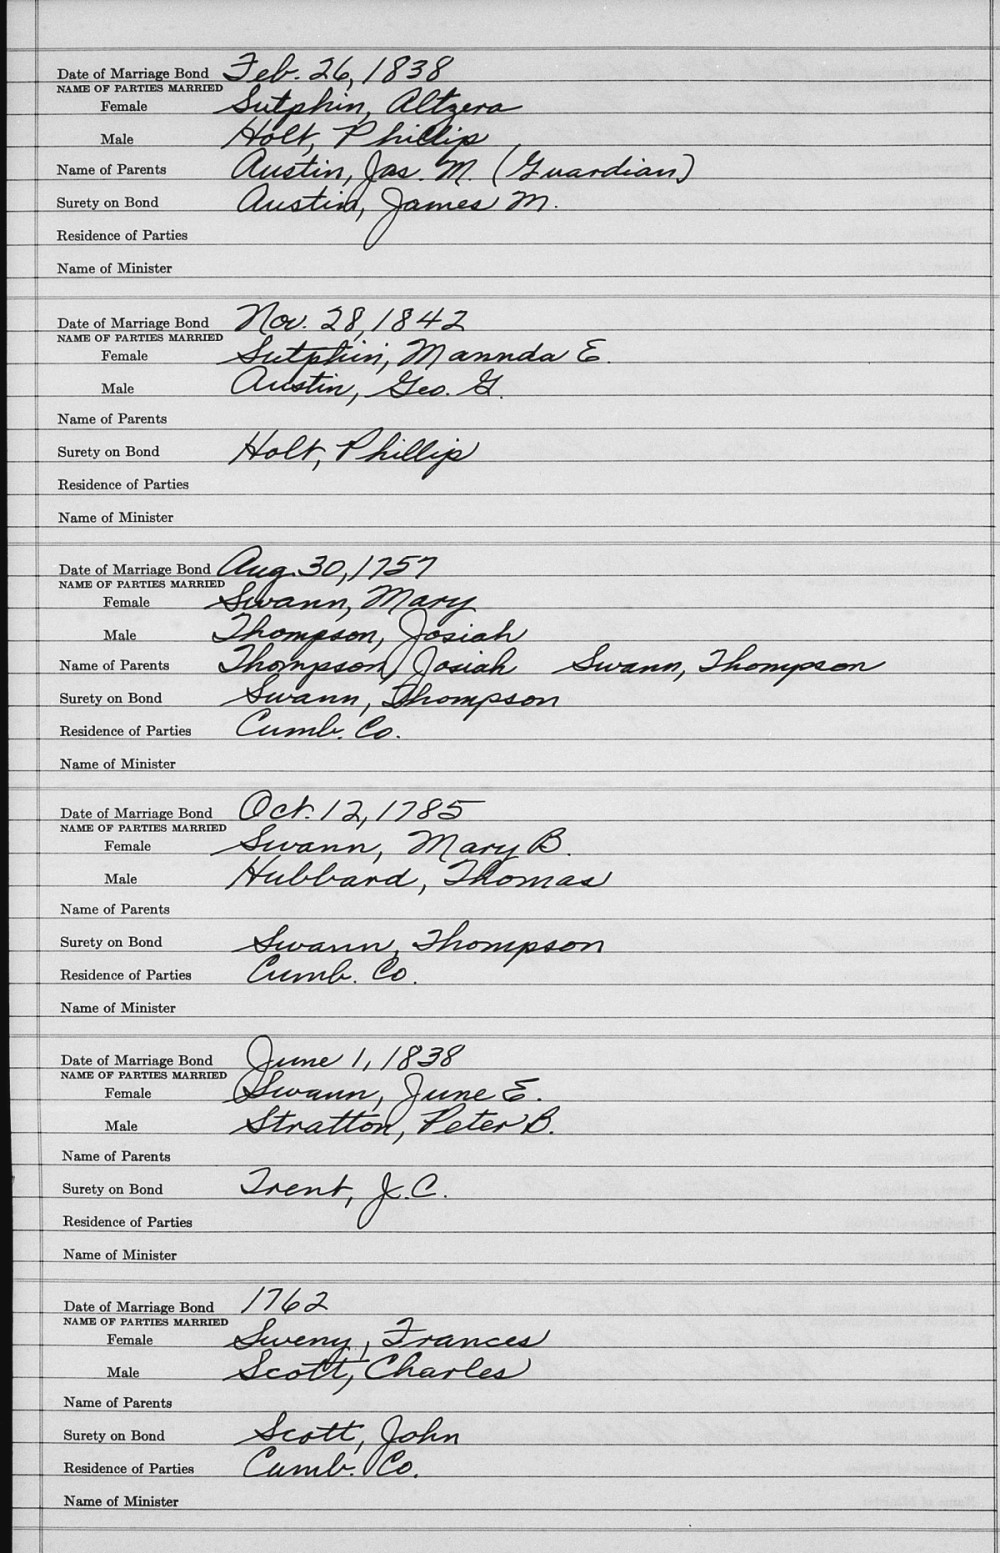 Date of Marriage Bond Feb. 26, 1838
NAME OF PARTIES MARRIED
Female Sutphin, Altzera
Male Holt, Phillip
Name of Parents Austin, Jas. M. (Guardian)
Surety on Bond Austin, James M.
Residence of Parties
Name of Minister
Date of Marriage Bond Nov. 28, 1842
NAME OF PARTIES MARRIED
Female Sutphin, Mannda E.
Male Austin, Geo. G.
Name of Parents
Surety on Bond Holt, Phillip
Residence of Parties
Name of Minister
Date of Marriage Bond Aug. 30, 1757
NAME OF PARTIES MARRIED
Female Swann, Mary
Male Thompson, Josiah
Name of Parents Thompson, Josiah Swann, Thompson
Surety on Bond Swann, Thompson
Residence of Parties Cumb. Co.
Name of Minister
Date of Marriage Bond Oct. 12, 1785
NAME OF PARTIES MARRIED
Female Swann, Mary B.
Male Hubbard, Thomas
Name of Parents
Surety on Bond Swann, Thompson
Residence of Parties Cumb. Co.
Name of Minister
Date of Marriage Bond June 1, 1838
NAME OF PARTIES MARRIED
Female Swann, June E.
Male Stratton, Peter B.
Name of Parents
Surety on Bond Trent, J. C.
Residence of Parties
Name of Minister
Date of Marriage Bond 1762
NAME OF PARTIES MARRIED
Female Sweny, Frances
Male Scott, Charles
Name of Parents
Surety on Bond Scott, John
Residence of Parties Cumb. Co.
Name of Minister